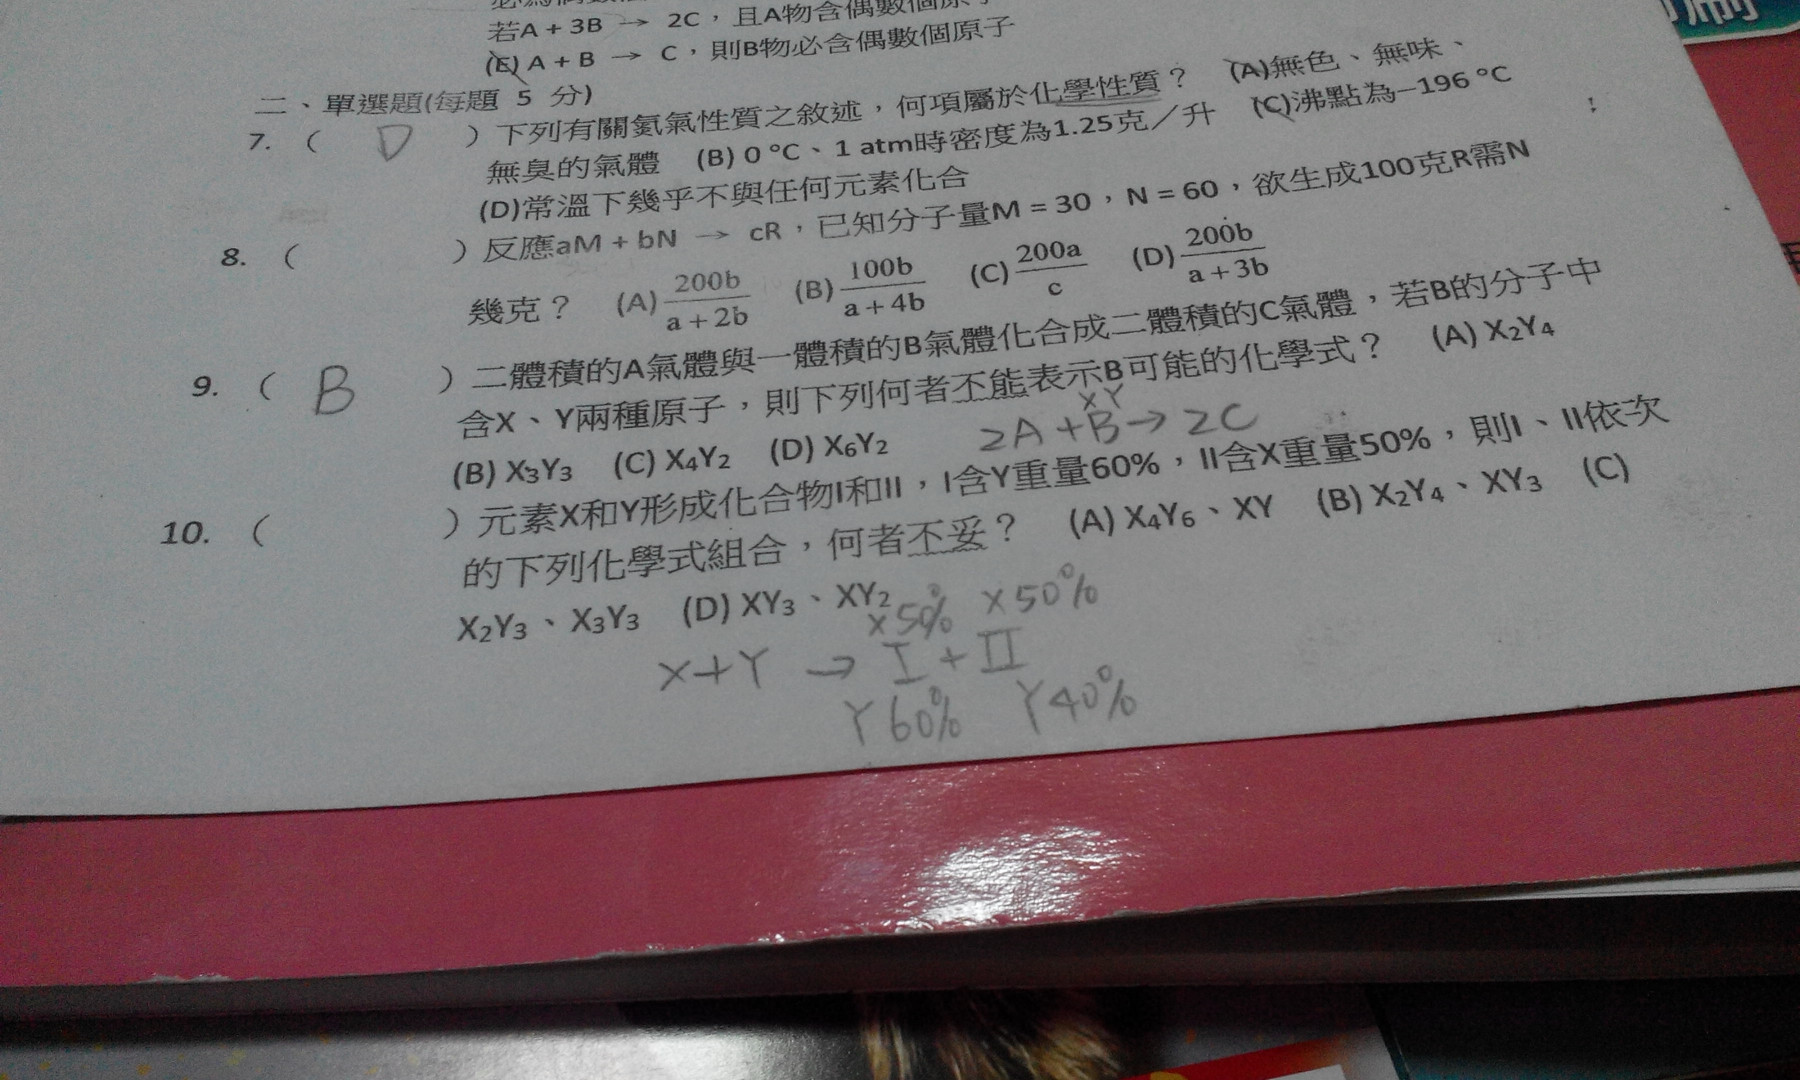 若A + 3B → 2C，且A物含偶數個原子
(E) A + B → C，則B物必含偶數個原子
二、單選題(每題 5 分)
7. ( D ) 下列有關氮氣性質之敘述，何項屬於化學性質？ (A)無色、無味、
無臭的氣體 (B) 0 °C、1 atm時密度為1.25克／升 (C)沸點為－196 °C
(D)常溫下幾乎不與任何元素化合
8. ( ) 反應aM + bN → cR，已知分子量M = 30，N = 60，欲生成100克R需N
幾克？ (A) 200b/(a + 2b) (B) 100b/(a + 4b) (C) 200a/c (D) 200b/(a + 3b)
9. ( B ) 二體積的A氣體與一體積的B氣體化合成二體積的C氣體，若B的分子中
含X、Y兩種原子，則下列何者不能表示B可能的化學式？ (A) X₂Y₄
(B) X₃Y₃ (C) X₄Y₂ (D) X₆Y₂
XY
2A + B → 2C
10. ( ) 元素X和Y形成化合物I和II，I含Y重量60%，II含X重量50%，則I、II依次
的下列化學式組合，何者不妥？ (A) X₄Y₆、XY (B) X₂Y₄、XY₃ (C)
X₂Y₃、X₃Y₃ (D) XY₃、XY₂
X50% X50%
X+Y → I + II
Y60% Y40%